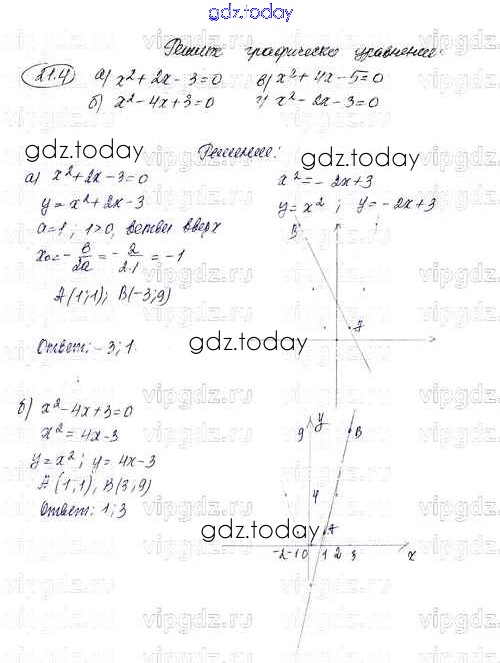 gdz.today
Решить графически уравнение:
21.4 а) x² + 2x - 3 = 0 в) x² + 4x - 5 = 0
б) x² - 4x + 3 = 0 г) x² - 2x - 3 = 0
gdz.today gdz.today
Решение:
а) x² + 2x - 3 = 0 x² = - 2x + 3
y = x² + 2x - 3 y = x² ; y = - 2x + 3
a = 1 ; 1 > 0, ветви вверх B
x₀ = - в/2a = - 2/2·1 = - 1
A (1; 1); B (-3; 9)
A
Ответ: - 3; 1. gdz.today
б) x² - 4x + 3 = 0
x² = 4x - 3 9 y B
y = x² ; y = 4x - 3
A (1; 1), B (3; 9) 4
Ответ: 1; 3
gdz.today A
-2 -1 0 1 2 3 x
vipgdz.ru